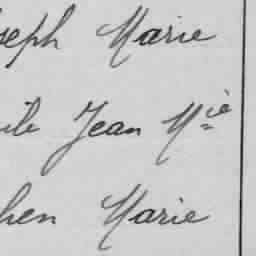 seph Marie
ile Jean Mie
hen Marie